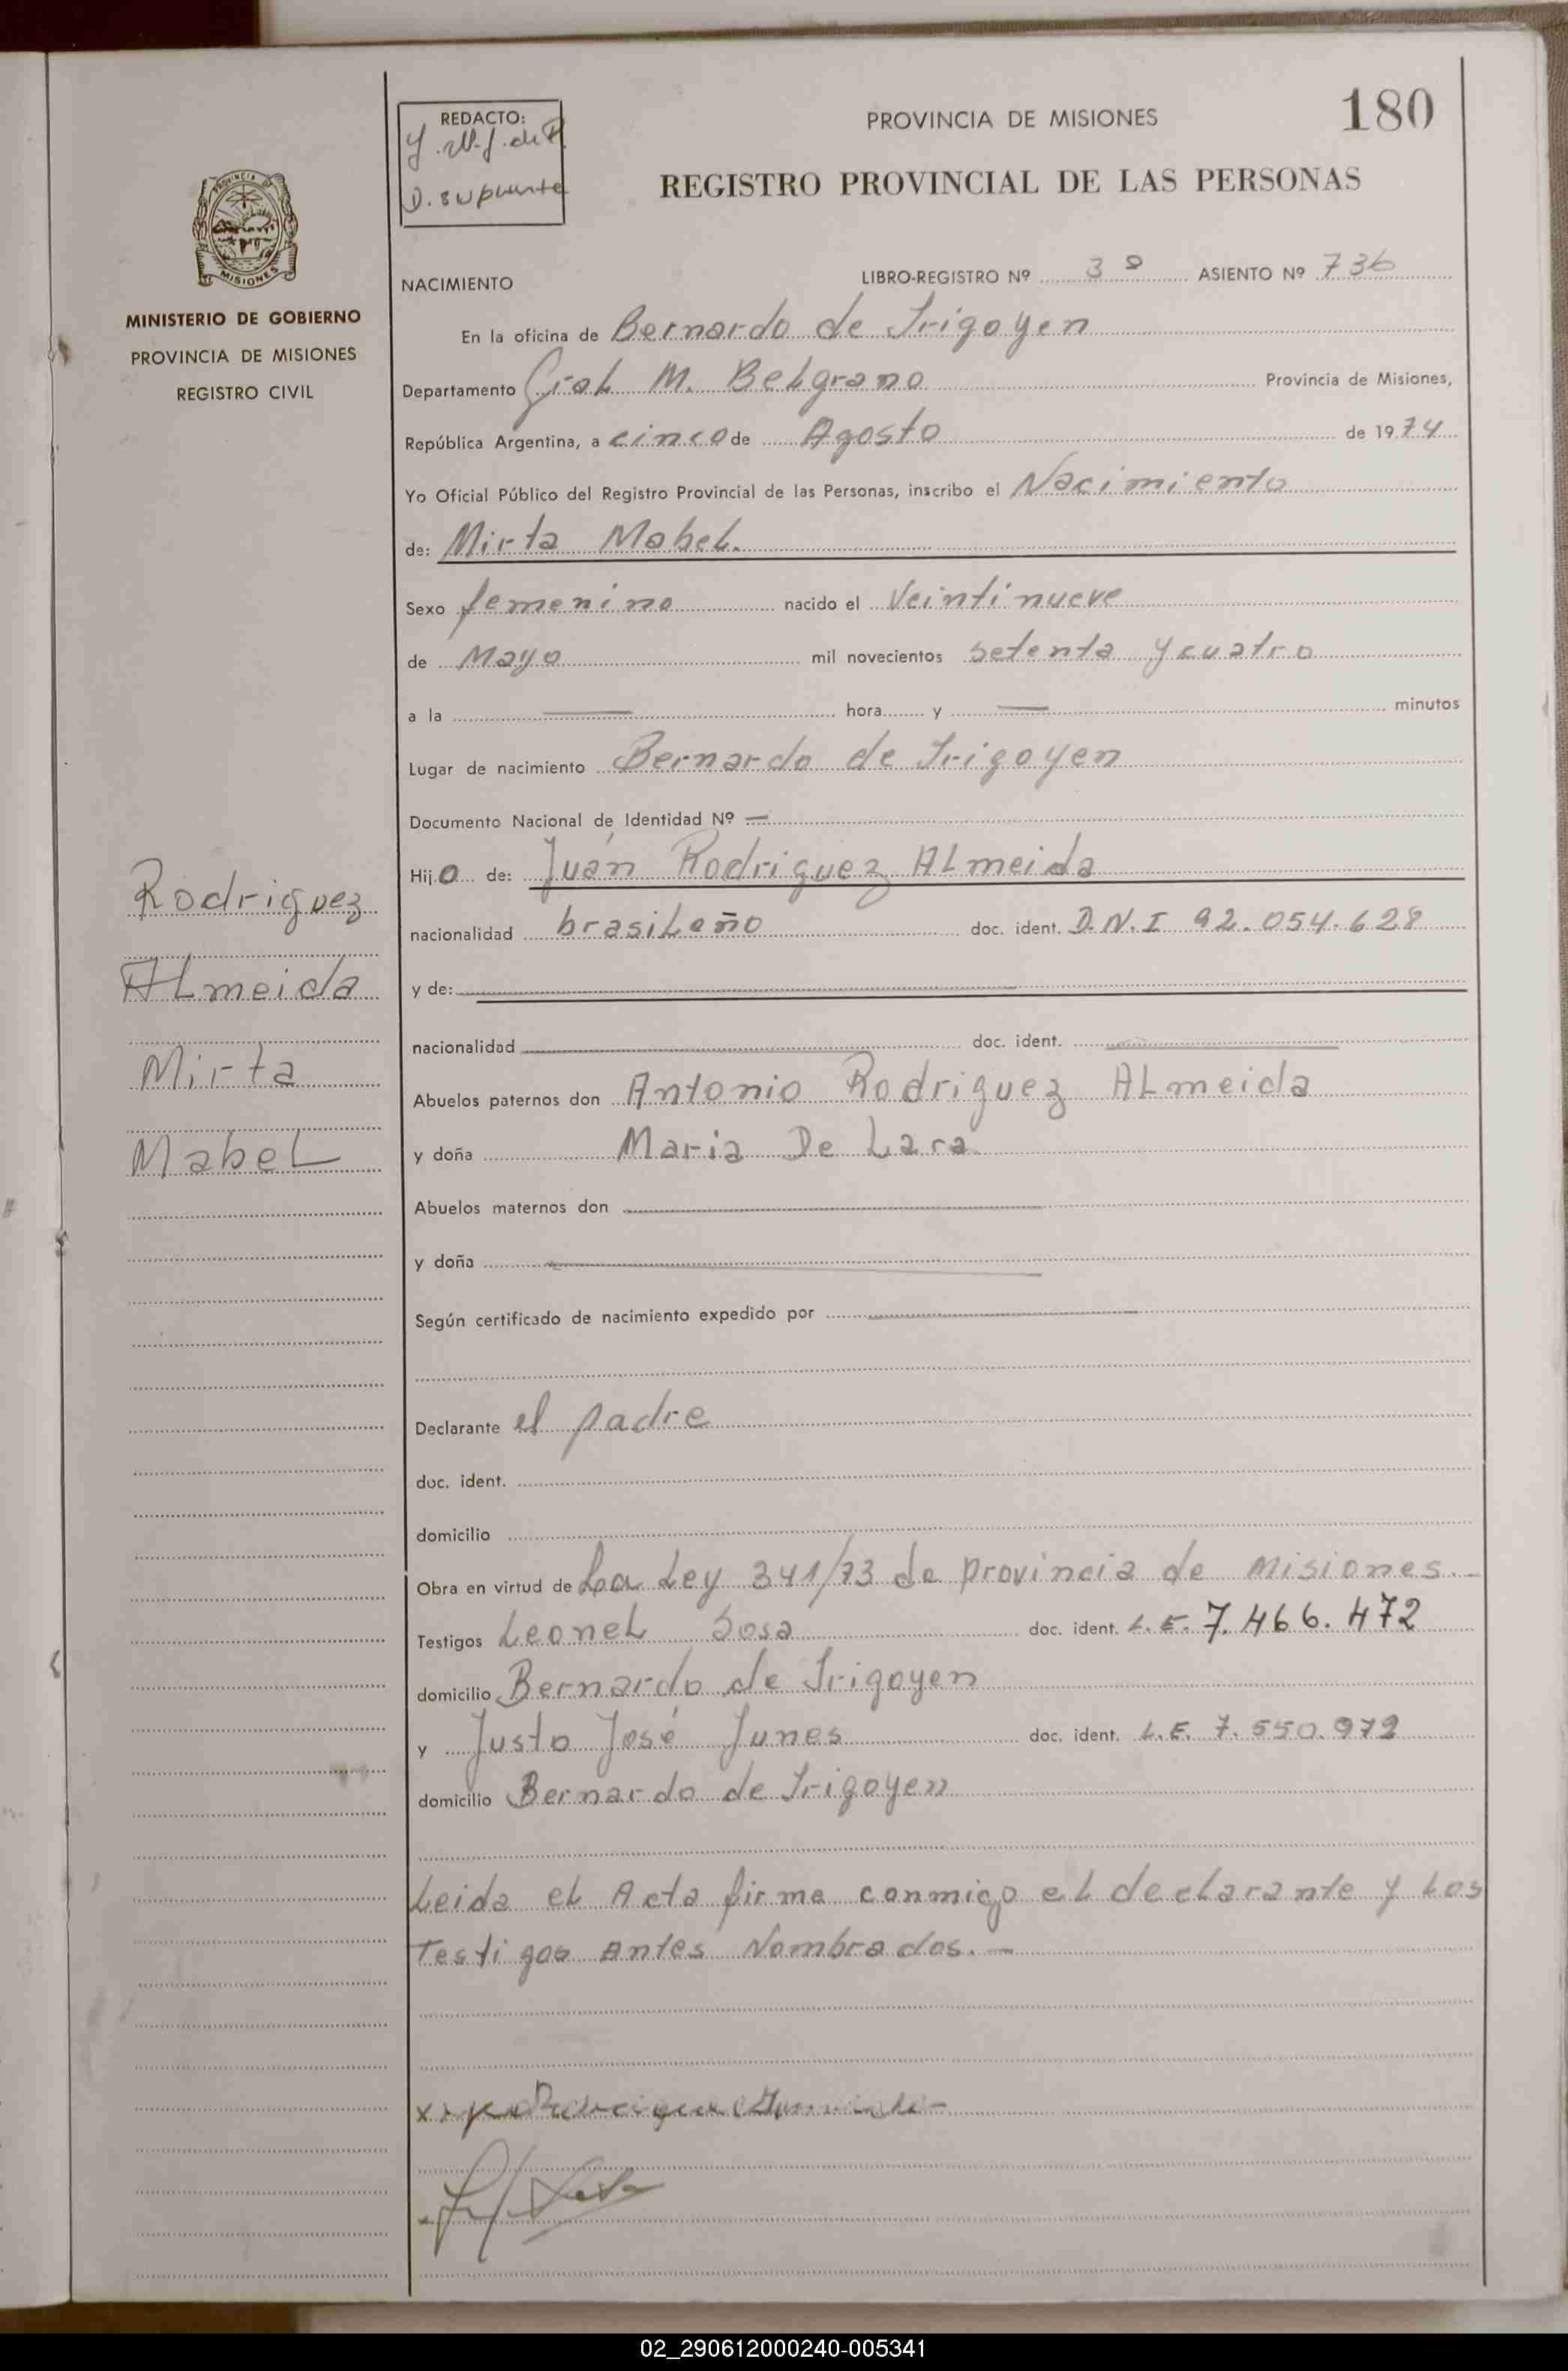 REDACTO:
D. suplente
PROVINCIA DE MISIONES
180
REGISTRO PROVINCIAL DE LAS PERSONAS
PROVINCIA DE
MISIONES
MINISTERIO DE GOBIERNO
PROVINCIA DE MISIONES
REGISTRO CIVIL
NACIMIENTO LIBRO-REGISTRO Nº 3º ASIENTO Nº 736
En la oficina de Bernardo de Irigoyen
Departamento Gral M. Belgrano Provincia de Misiones,
República Argentina, a cinco de Agosto de 1974
Yo Oficial Público del Registro Provincial de las Personas, inscribo el Nacimiento
de: Mirta Mabel.
Sexo femenino nacido el Veintinueve
de Mayo mil novecientos setenta y cuatro
a la — hora y — minutos
Lugar de nacimiento Bernardo de Irigoyen
Documento Nacional de Identidad Nº —
Hijo de: Juán Rodriguez Almeida
nacionalidad brasileño doc. ident. D.N.I 92.054.628
y de:
nacionalidad doc. ident.
Abuelos paternos don Antonio Rodriguez Almeida
y doña Maria De Lara
Abuelos maternos don
y doña
Según certificado de nacimiento expedido por
Declarante el padre
doc. ident.
domicilio
Obra en virtud de La Ley 341/73 de provincia de Misiones.-
Testigos Leonel Sosa doc. ident. L.E. 7.466.472
domicilio Bernardo de Irigoyen
y Justo José Junes doc. ident. L.E. 7.550.972
domicilio Bernardo de Irigoyen
Leida el Acta firma conmigo el declarante y los
Testigos Antes Nombrados.-
Rodriguez
Almeida
Mirta
Mabel
02_290612000240-005341